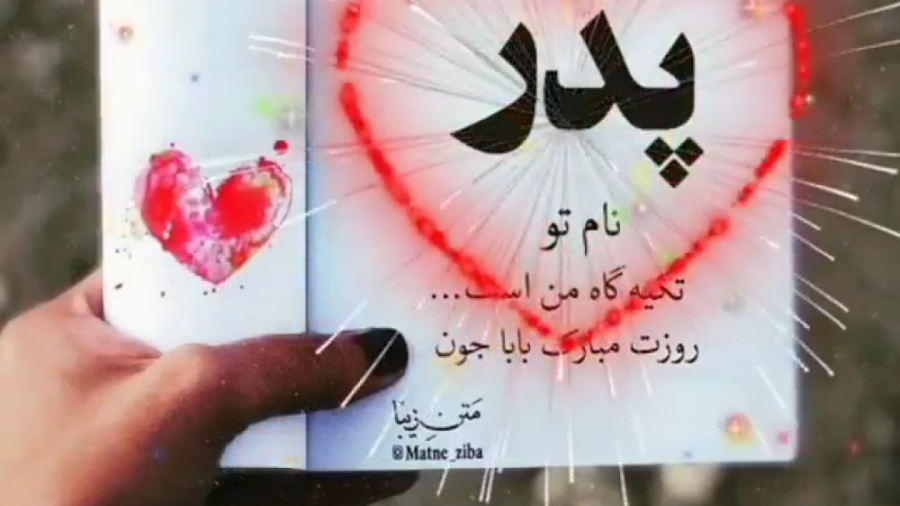 پدر
نام تو
تکیه گاه من است...
روزت مبارک بابا جون
متن زیبا
@Matne_ziba